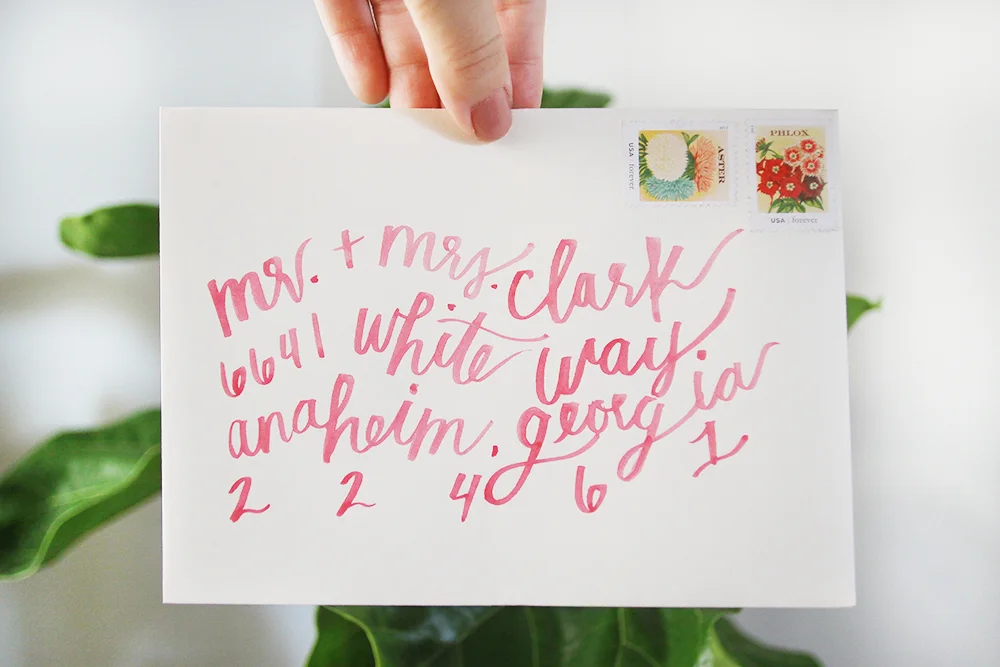 USA forever
ASTER
PHLOX
USA forever
mr. + mrs. clark
6641 white way.
anaheim, georgia
2 2 4 6 1